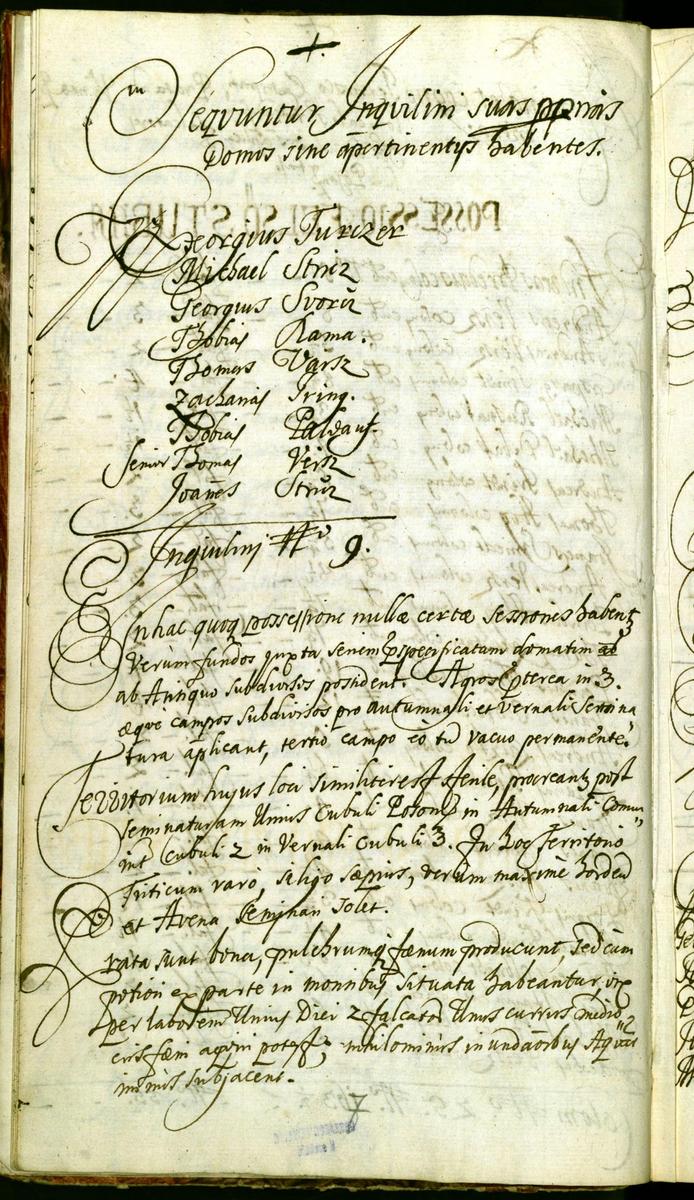 Seqvuntur Inqvilini suas ppnas
Domos sine apertinentys habentes.
Georgius Turczer
Michael Stricz
Georgius Svorcz
Thobias Rama.
Thomas Varsz
Zacharias Iring.
Thobias Paldauf.
Senior Thomas Versz
Joañes Strúcz
Inqiulinj No 9.
In hac quoq possessione nullæ certæ Sessiones habent
Verùm fundos juxta seriem specificatam domatim
ab Antiquo Subdivisos possident. Agros Pterea in 3.
æqve campos Subdivisos pro Autumnali et Vernali Semina
tura aplicant, tertio campo eò tũ vacuo permanente.
Territorium hujus loci similiter est sterile, procreant post
Seminaturam Unius Cubuli Poson in Autumnali Comu
int Cubuli 2 in Vernali Cubuli 3. In hoc Territorio
Triticum varò, seligo sæpius, verùm maxime hordeũ
et Avena Seminari Solet.
Prata sunt bona, pulchrumq fænum producunt, Sed cum
potiori ex parte in montibus situata habeantur, vix
per laborem Unius Diei 2 falcator Unus currus medio
cris fæni aqviri potest, nihilominus inundaõibus Aqvar
minus subjacent.
7